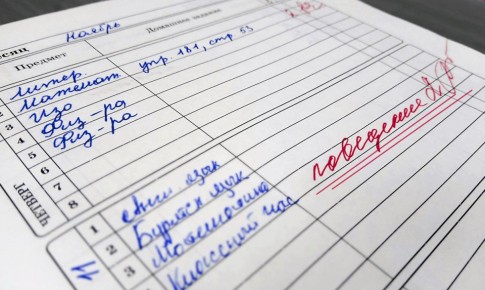 есяц Ноябрь
Предмет Домашнее задание
1 Литер
2 Математ. упр. 181, стр 53
3 Изо
4 Физ-ра
5 Физ-ра
6
7
8
ЧЕТВЕРГ
поведение
11
1 Англ. язык
2 Бурятск язык
3 Математика
Классный час